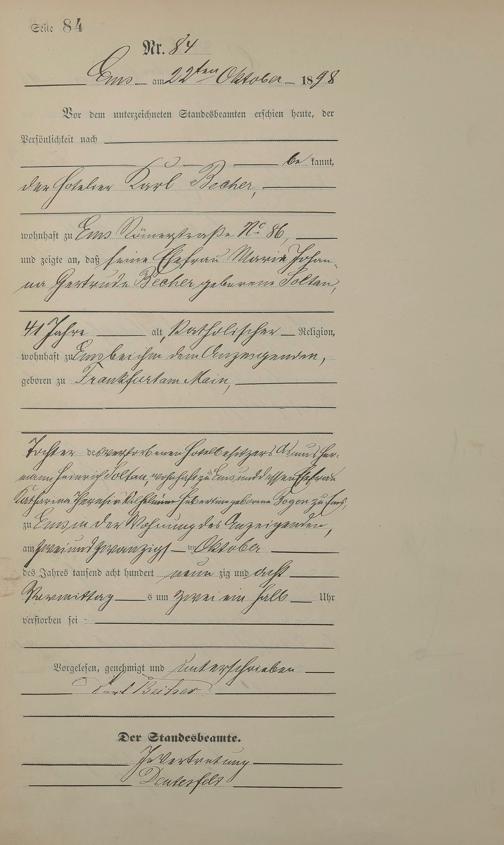 Seite 84
Nr. 84
Ems am 22ten Oktober 1898
Vor dem unterzeichneten Standesbeamten erschien heute, der
Persönlichkeit nach
be kannt,
der Hotelier Karl Becher,
wohnhaft zu Ems Römerstraße No 86,
und zeigte an, daß seine Ehefrau Maria Johan-
na Gertrude Becher geborene Soltan,
41 Jahre alt, Katholischer Religion,
wohnhaft zu Ems bei ihm dem Anzeigenden,
geboren zu Frankfurt am Main,
Tochter des verstorbenen Hotelbesitzers Her-
mann Heinrich Soltan, wohnhaft zu Ems und dessen Ehefrau
Katharina geborene zu Ems,
zu Ems, in der Wohnung des Anzeigenden,
am zwei und zwanzigsten Oktober
des Jahres tausend acht hundert neun zig und acht
Vormittags um zwei ein halb Uhr
verstorben sei
Vorgelesen, genehmigt und unterschrieben
Karl Becher
Der Standesbeamte.
In Vertretung